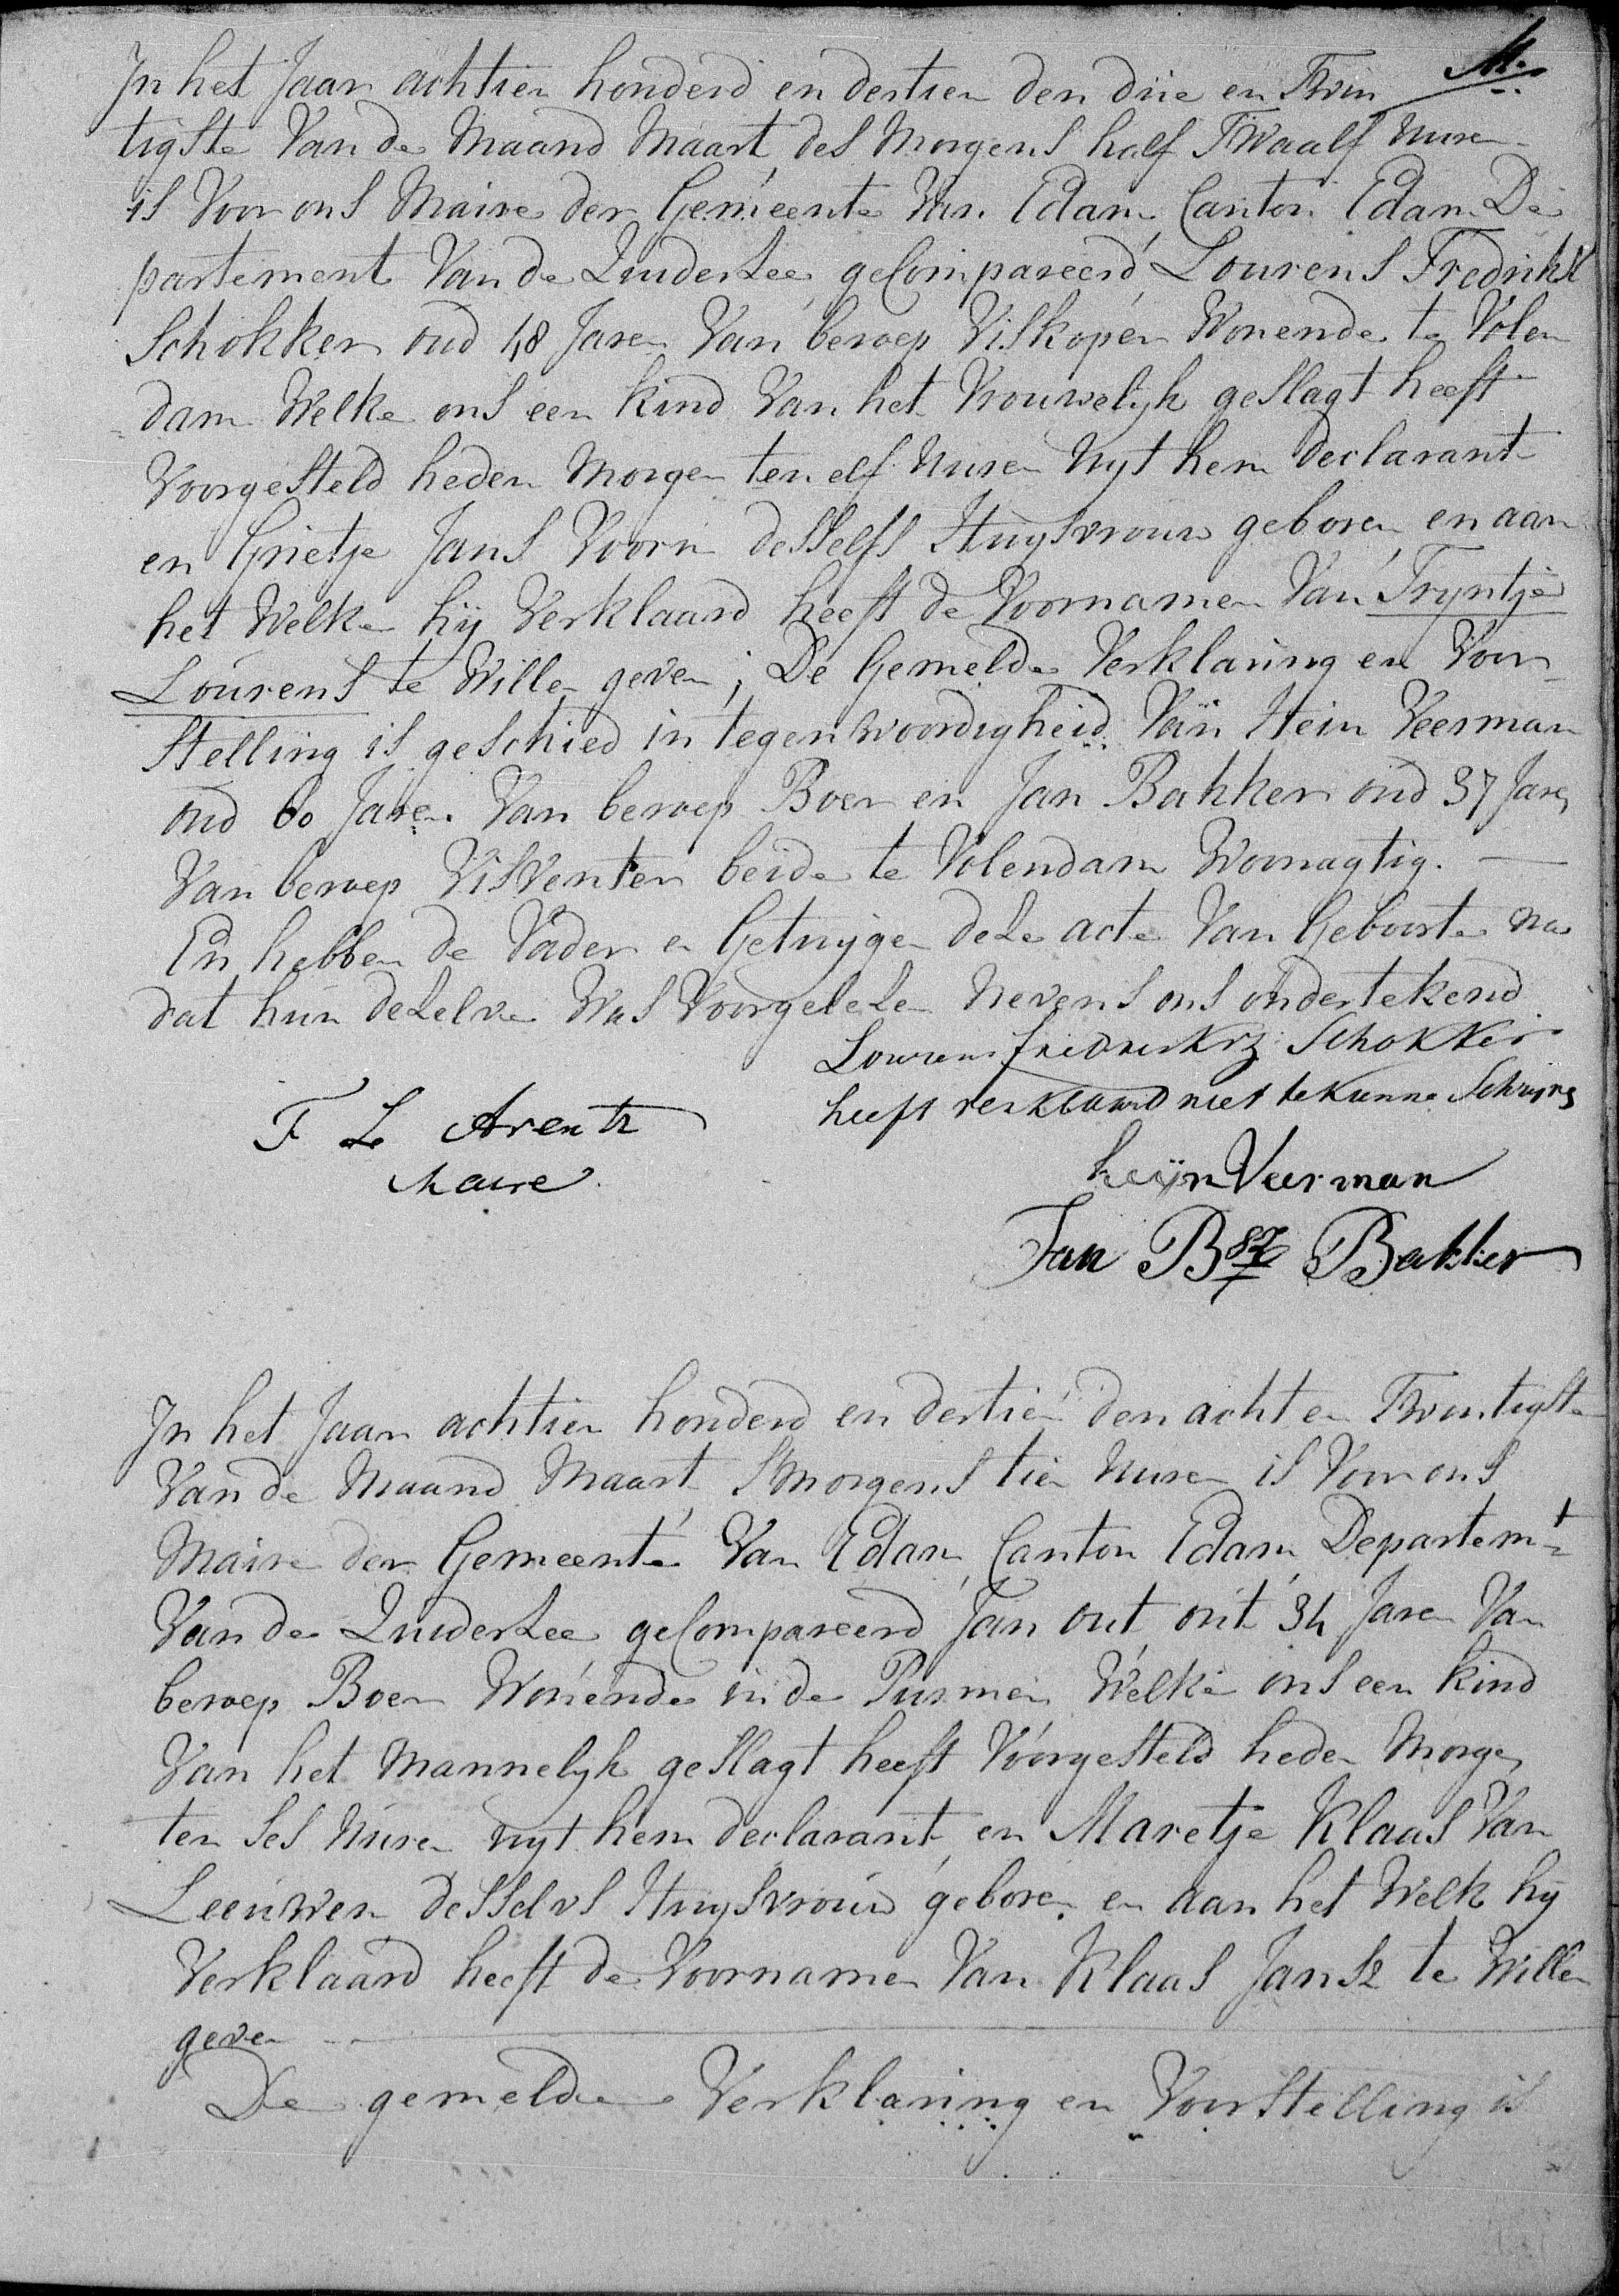 In het Jaar achtien honderd en dertien den drie en Twin
tigste Van de Maand Maart des Morgens half Twaalf Uuren
is Voor ons Maire der Gemeente Van Edam Canton Edam De
partement Van de Zuider Zee geCompareerd Lourens Fredriks
Schokker oud 48 Jaren Van beroep Viskoper Wonende te Volen
dam Welke ons een kind Van het Vrouwelyk geslagt heeft
Voorgesteld heden Morgen ten elf Uuren Uyt hem declarant
en Grietje Jans Voorn desselfs Huysvrouw geboren en aan
het Welke hij Verklaard heeft de Voornamen Van Tryntje
Lourens te Willen geven; De Gemelde Verklaring en Voor
stelling is geschied in tegenwoordigheid Van Hein Veerman
oud 60 Jaren Van beroep Boer en Jan Bakker oud 37 Jaren
Van beroep Visventer beide te Volendam Woonagtig.
En hebben de Vader en Getuygen deze acte Van Geboorte na
dat hun dezelve Was Voorgelezen Nevens ons ondertekend
Lourens fredrerkz Schokker
heeft verklaard niet te kunne Schrijve
F L Arentz
Maire
heijn Veerman
Jan Bsz Bakker
In het Jaar achtien honderd en dertien den acht en Twintigste
Van de Maand Maart Smorgens tien Uuren is Voor ons
Maire der Gemeente Van Edam Canton Edam Departemt
Van de Zuider Zee geCompareerd Jan out out 34 Jaren Van
beroep Boer Wonende in de Purmer Welke ons een kind
Van het Mannelyk geslagt heeft Voorgesteld heden Morgen
ten ses Uuren uyt hem declarant en Maretje Klaas Van
Leeuwen desselvs Huysvrouw geboren en aan het Welk hij
Verklaard heeft de Voornamen Van Klaas Jansz te Willen
geven
De gemelde Verklaring en Voorstelling is